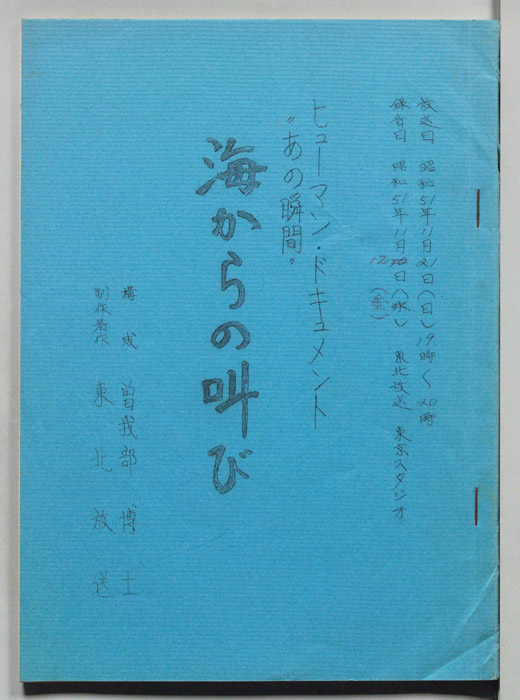 放送日 昭和51年11月21日(日)19時〜20時
録音日 昭和51年11月10日(水) 東北放送 東京スタジオ
12
(金)
ヒューマン・ドキュメント
"あの瞬間"
海からの叫び
構成 曽我部 博士
制作著作 東北放送